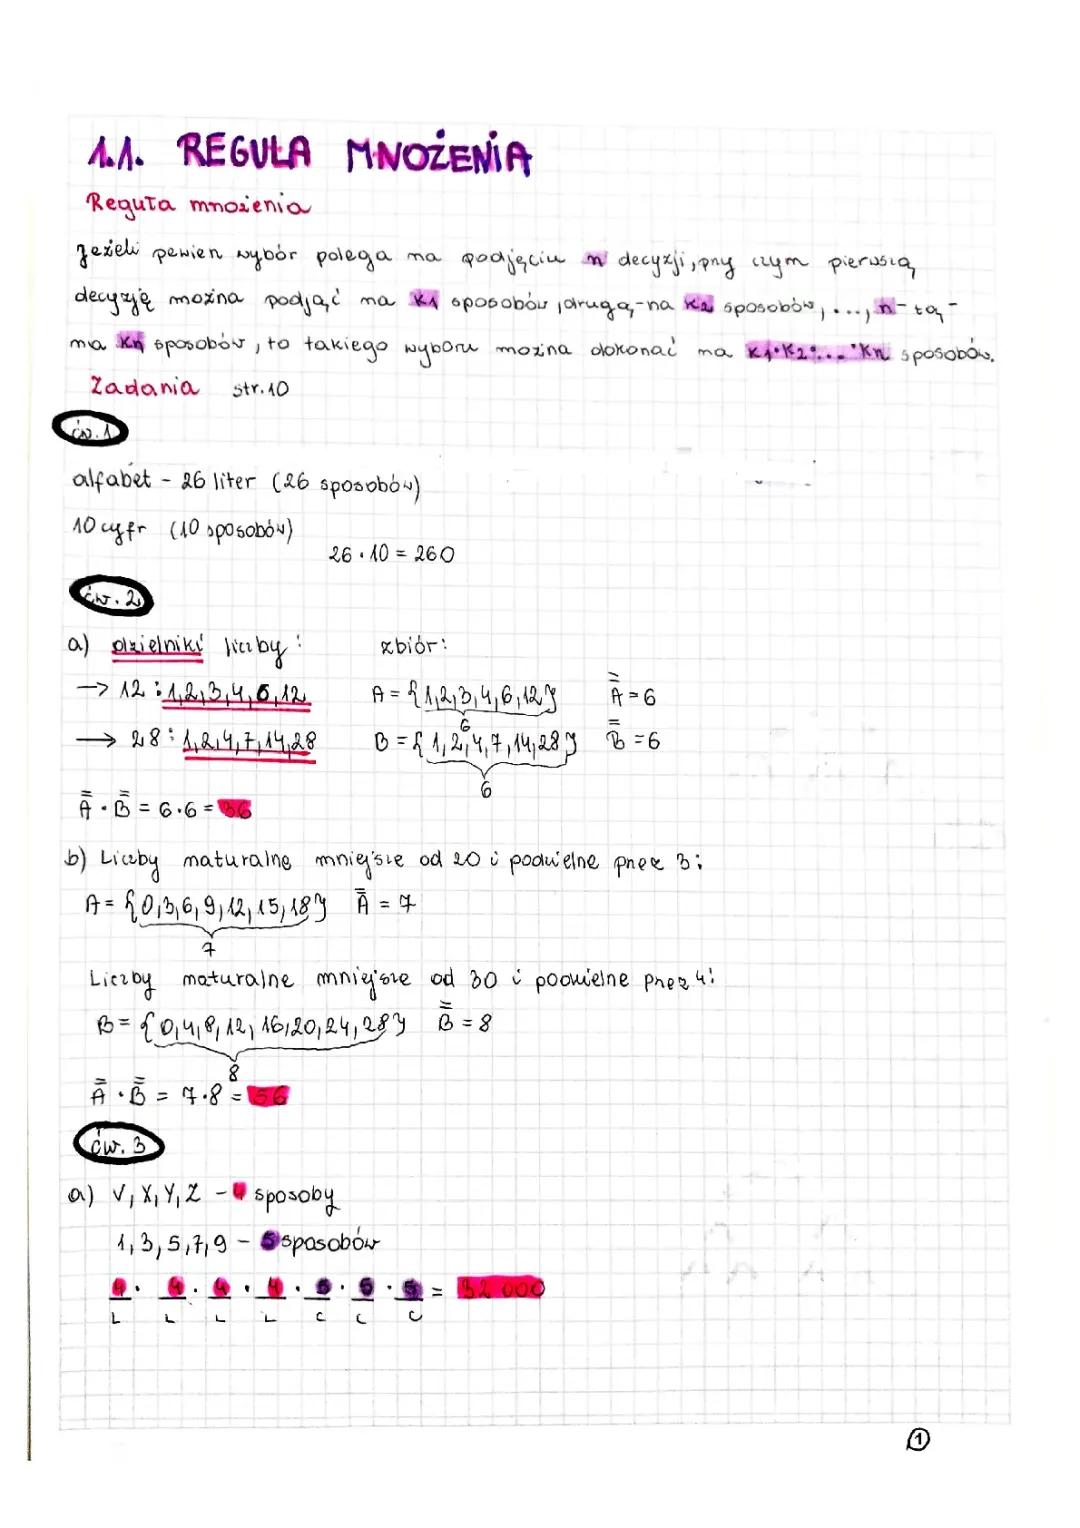 1.1. REGUŁA MNOŻENIA
Reguła mnożenia
Jeżeli pewien wybór polega na podjęciu n decyzji, przy czym pierwszą
decyzję można podjąć na k1 sposobów, drugą - na k2 sposobów, ..., n - tą -
na kn sposobów, to takiego wyboru można dokonać na k1·k2·...·kn sposobów.
Zadania str.10
ćw.1
alfabet - 26 liter (26 sposobów)
10 cyfr (10 sposobów)
26 · 10 = 260
ćw. 2
a) dzielniki liczby: zbiór:
→ 12 : 1,2,3,4,6,12 A = {1,2,3,4,6,12} A̿ = 6
6
→ 28 : 1,2,4,7,14,28 B = {1,2,4,7,14,28} B̿ = 6
6
A̿ · B̿ = 6·6 = 36
b) Liczby naturalne mniejsze od 20 i podzielne przez 3:
A = {0,3,6,9,12,15,18} A̿ = 7
7
Liczby naturalne mniejsze od 30 i podzielne przez 4:
B = {0,4,8,12,16,20,24,28} B̿ = 8
8
A̿ · B̿ = 7·8 = 56
ćw. 3
a) V, X, Y, Z - 4 sposoby
1,3,5,7,9 - 5 sposobów
4 · 4 · 4 · 4 · 5 · 5 · 5 = 32 000
L L L L C C C
1